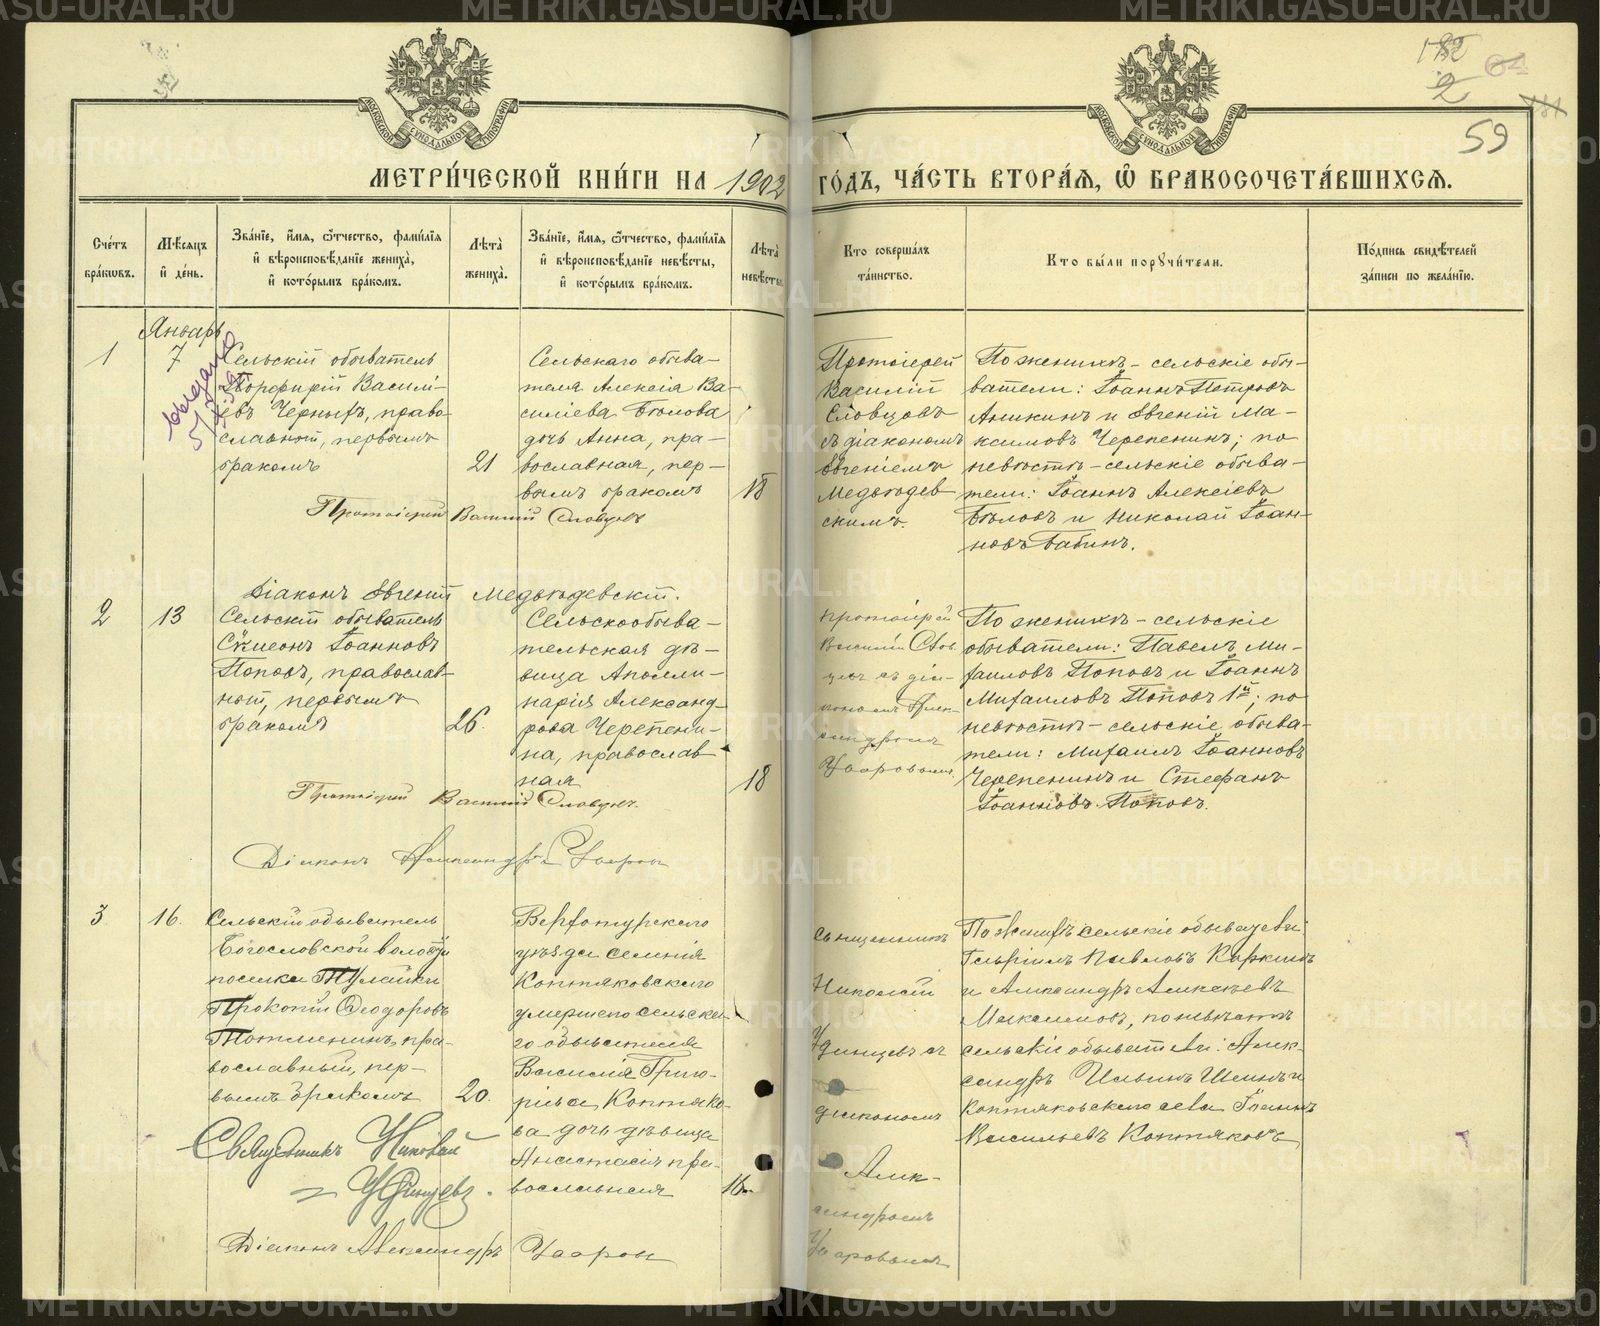 METRIKI.GASU-URAL.RU
182
2
59
МОСКОВСКОЙ СУНОДАЛЬНОЙ ТИПОГРАФІИ
МЕТРИ́ЧЕСКОЙ КНИ́ГИ НА 1902 ГО́ДЪ, ЧА́СТЬ ВТОРА́Я, Ѡ БРАКОСОЧЕТА́ВШИХСЯ.
Сче́тъ бра́кѡвъ.
Мѣ́сяцъ и́ де́нь.
Зва́нїе, и́мя, ѻ́тчество, фами́лїя и́ вѣроисповѣ́данїе жениха̀, и́ кото́рымъ бра́комъ.
Лѣ́та̀ жениха̀.
Зва́нїе, и́мя, ѻ́тчество, фами́лїя и́ вѣроисповѣ́данїе невѣ́сты, и́ кото́рымъ бра́комъ.
Лѣ́та̀ невѣ́сты.
Кто̀ соверша́лъ та́инство.
Кто̀ бы́ли порꙋчи́тели.
По́дпись свидѣ́телей за́писи по жела́нїю.
Январь
1
7
выдано
Сельскій обыватель
Порфирій Василі-
евъ Черныхъ, право-
славный, первымъ
бракомъ
21
Сельскаго обыва-
теля Алексія Ва-
силіева Бѣлова
дочь Анна, пра-
вославная, пер-
вымъ бракомъ
18
Протоіерей
Василій
Словцовъ
съ діакономъ
Евгеніемъ
Медвѣдев-
скимъ.
По женихѣ - сельскіе обы-
ватели: Іоаннъ Петровъ
Аникинъ и Евгеній Ма-
ксимовъ Черепенинъ; по
невѣстѣ - сельскіе обыва-
тели: Іоаннъ Алексіевъ
Бѣловъ и Николай Іоан-
новъ Бабинъ.
Протоіерей Василій Словцовъ
Діаконъ Евгеній Медвѣдевскій.
2
13
Сельскій обыватель
Сѵмеонъ Іоанновъ
Поповъ, православ-
ный, первымъ
бракомъ
26.
Сельскообыва-
тельская дѣ-
вица Аполли-
нарія Александ-
рова Черепени-
на, православ
ная
18
Протоіерей
Василій Слов-
цовъ съ діа-
кономъ Алек-
сандромъ
Уаровымъ.
По женихѣ - сельскіе
обыватели: Павелъ Ми-
хаиловъ Поповъ и Іоаннъ
Михаиловъ Поповъ 1й; по
невѣстѣ - сельскіе обыва-
тели: Михаилъ Іоанновъ
Черепенинъ и Стефанъ
Іоанновъ Поповъ.
Протоіерей Василій Словцовъ.
Діаконъ Александръ Уаровъ
3
16.
Сельскій обыватель
Богословской волости
поселка
Прокопій Ѳеодоровъ
Тотменинъ, пра-
вославный, пер-
вымъ бракомъ
20.
Верхотурскаго
уѣзда селенія
Коптяковскаго
умершего сельска-
го обывателя
Василія Григо-
рьева Коптяко-
ва дочь дѣвица
Анастасія пра-
вославная
16
Священникъ
Николай
Удинцевъ съ
діакономъ
Алек-
сандромъ
Уаровымъ
По женихѣ сельскіе обыватели:
Гавріилъ Павловъ Каркинъ
и Александръ Алексѣевъ
Максимовъ, по невѣстѣ
сельскіе обыватели: Алек-
сандръ Ильинъ Шеинъ и
Коптяковскаго села Іоаннъ
Васильевъ Коптяковъ
Священникъ Николай
Удинцевъ.
Діаконъ Александръ Уаровъ